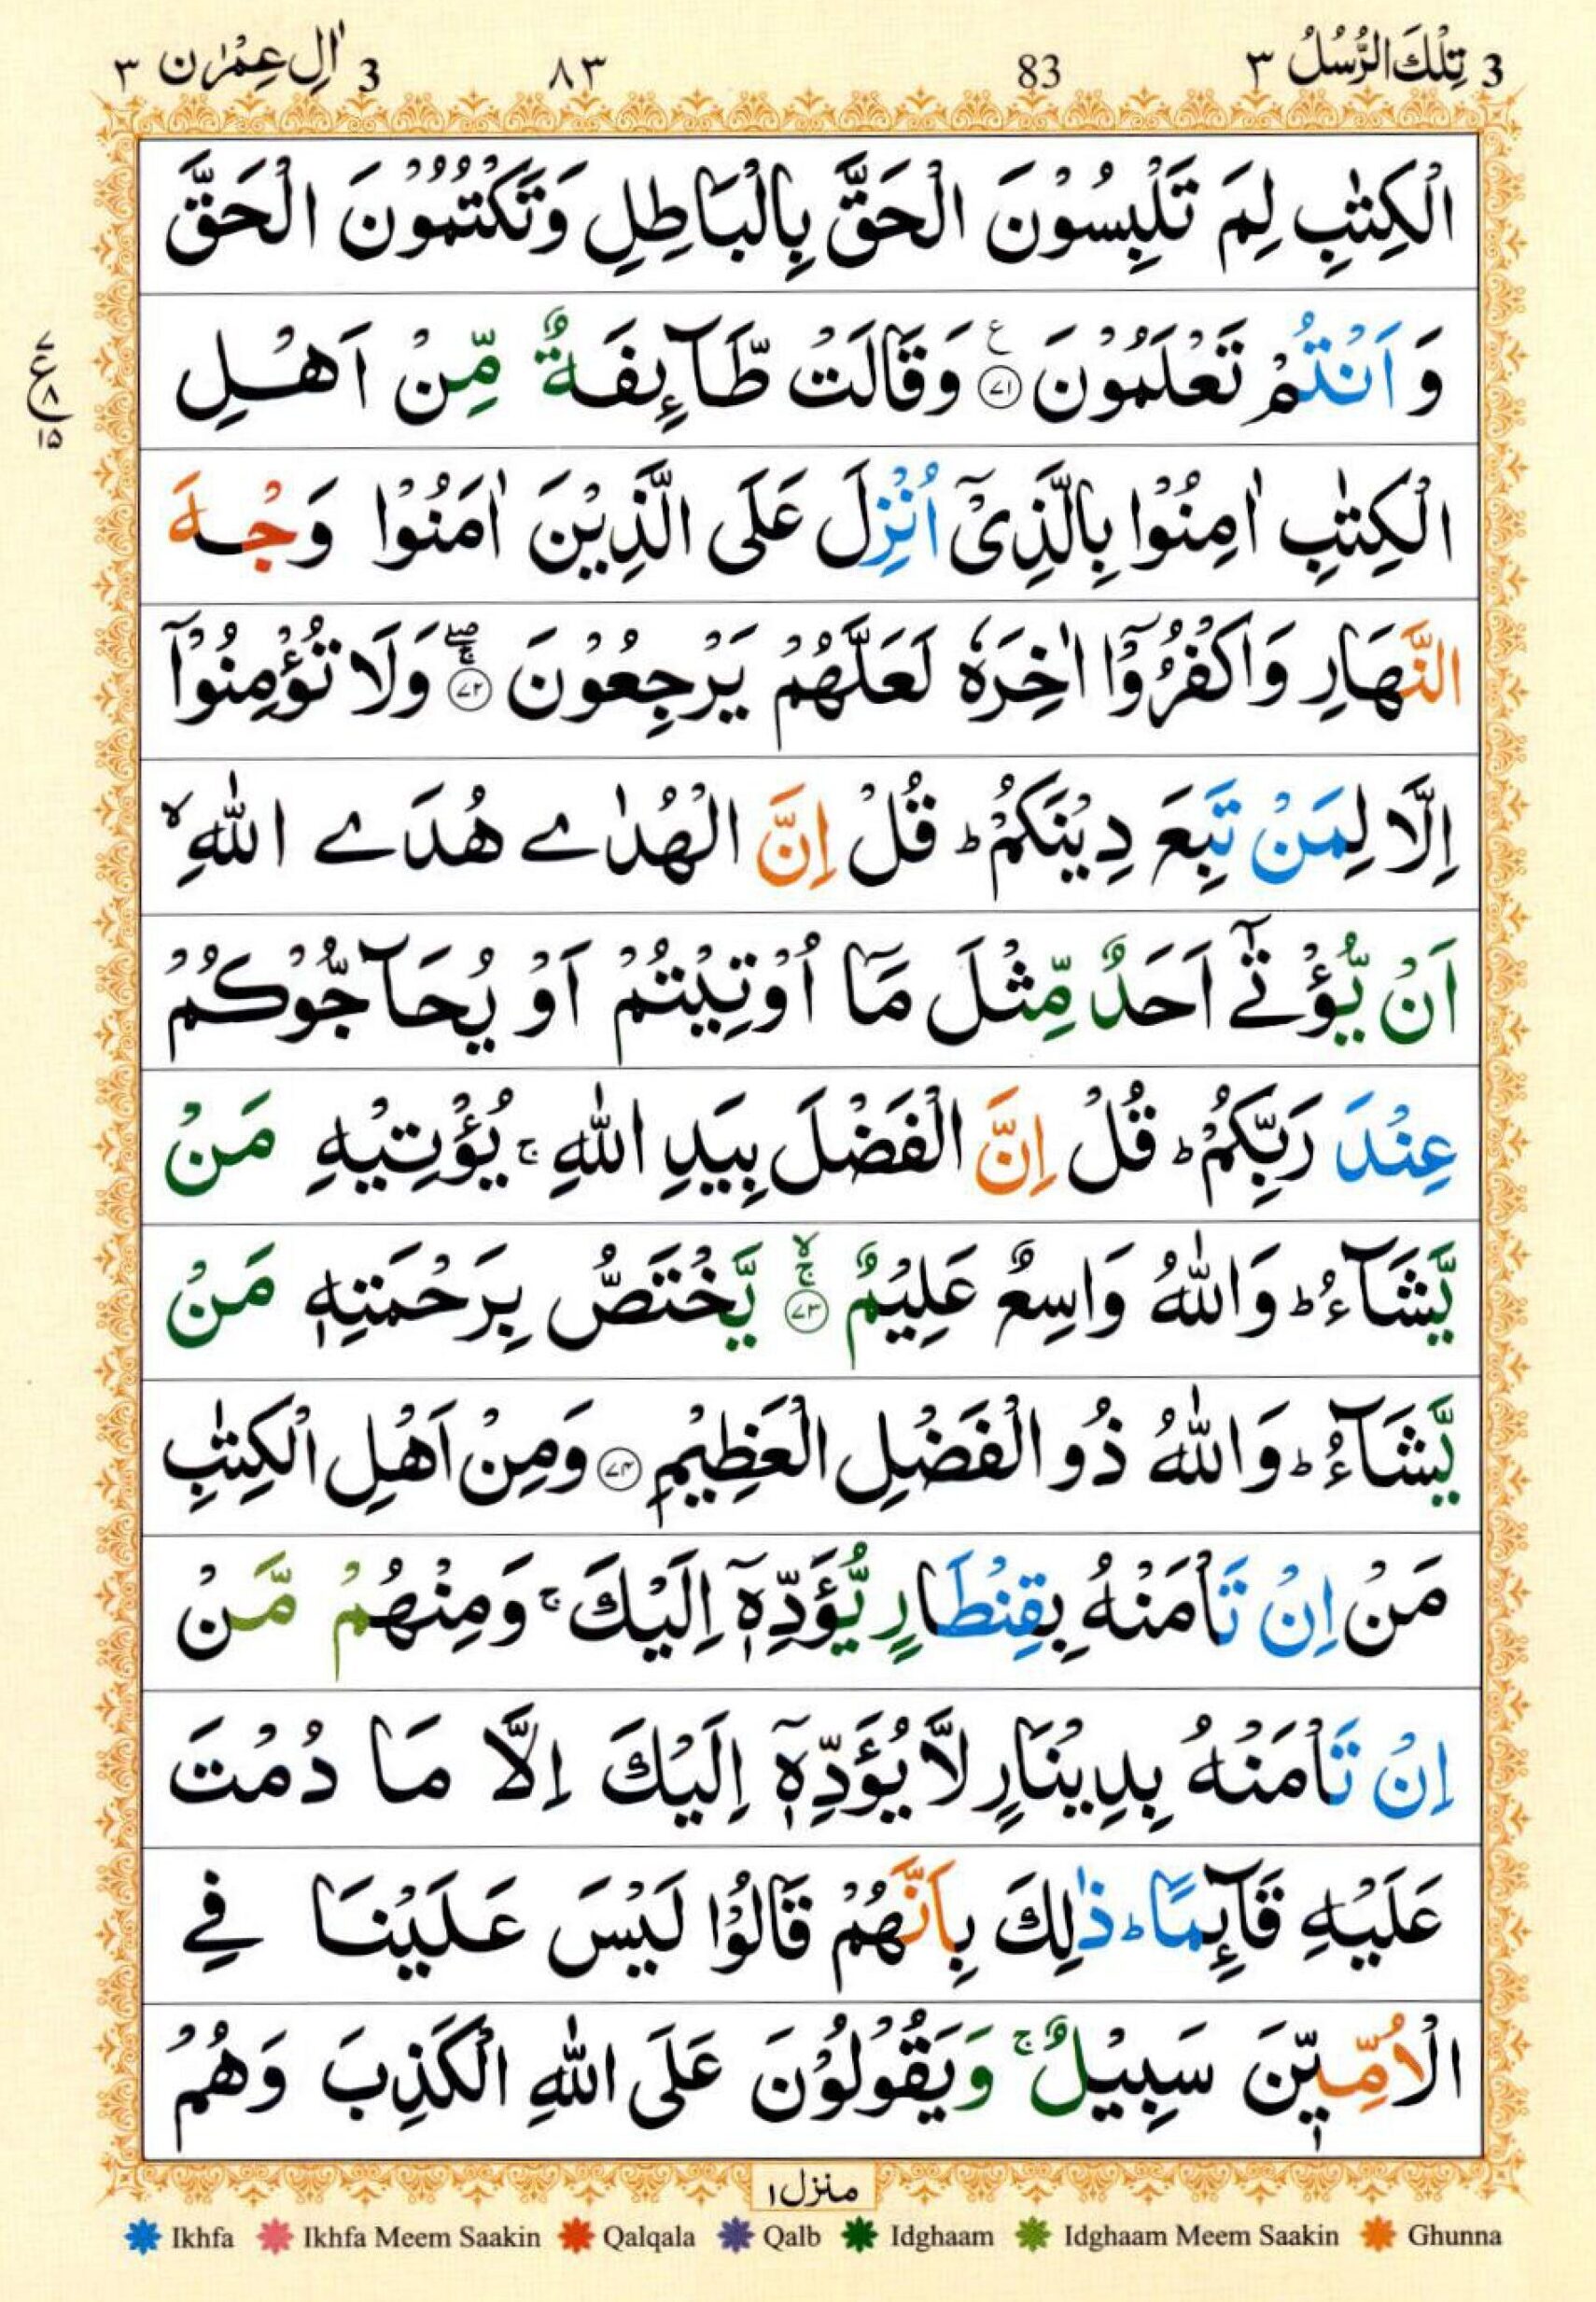 3 تِلْكَ الرُّسُلُ ٣ 83 ٨٣ 3 اٰلِ عِمْرٰن ٣
الْكِتٰبِ لِمَ تَلْبِسُوْنَ الْحَقَّ بِالْبَاطِلِ وَتَكْتُمُوْنَ الْحَقَّ
وَ اَنْتُمْ تَعْلَمُوْنَ ﴿٧١﴾ ع وَقَالَتْ طَّآئِفَةٌ مِّنْ اَهْلِ
٧ ع ٨ ١٥
الْكِتٰبِ اٰمِنُوْا بِالَّذِیْۤ اُنْزِلَ عَلَی الَّذِیْنَ اٰمَنُوْا وَجْهَ
النَّهَارِ وَاكْفُرُوْۤا اٰخِرَهٗ لَعَلَّهُمْ یَرْجِعُوْنَ ﴿٧٢﴾ ۚۖ وَلَا تُؤْمِنُوْۤا
اِلَّا لِمَنْ تَبِعَ دِیْنَكُمْ ؕ قُلْ اِنَّ الْهُدٰے هُدَے اللّٰهِ ۙ
اَنْ یُّؤْتٰۤے اَحَدٌ مِّثْلَ مَاۤ اُوْتِیْتُمْ اَوْ یُحَآجُّوْكُمْ
عِنْدَ رَبِّكُمْ ؕ قُلْ اِنَّ الْفَضْلَ بِیَدِ اللّٰهِ ۚ یُؤْتِیْهِ مَنْ
یَّشَآءُ ؕ وَاللّٰهُ وَاسِعٌ عَلِیْمٌ ﴿٧٣﴾ ۚۙ یَّخْتَصُّ بِرَحْمَتِهٖ مَنْ
یَّشَآءُ ؕ وَاللّٰهُ ذُو الْفَضْلِ الْعَظِیْمِ ﴿٧٤﴾ وَمِنْ اَهْلِ الْكِتٰبِ
مَنْ اِنْ تَاْمَنْهُ بِقِنْطَارٍ یُّؤَدِّهٖۤ اِلَیْكَ ۚ وَمِنْهُمْ مَّنْ
اِنْ تَاْمَنْهُ بِدِیْنَارٍ لَّا یُؤَدِّهٖۤ اِلَیْكَ اِلَّا مَا دُمْتَ
عَلَیْهِ قَآئِمًا ؕ ذٰلِكَ بِاَنَّهُمْ قَالُوْا لَیْسَ عَلَیْنَا فِے
الْاُمِّیّٖنَ سَبِیْلٌ ۚ وَیَقُوْلُوْنَ عَلَی اللّٰهِ الْكَذِبَ وَهُمْ
منزل ۱
Ikhfa Ikhfa Meem Saakin Qalqala Qalb Idghaam Idghaam Meem Saakin Ghunna